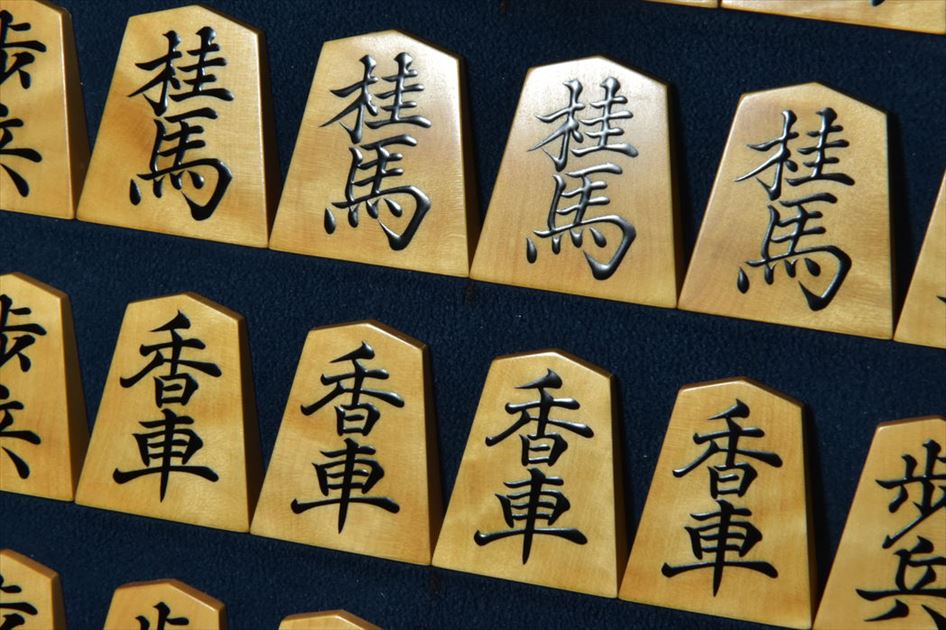 歩兵 桂馬 桂馬 桂馬 桂馬
歩兵 香車 香車 香車 香車 歩兵
歩 歩